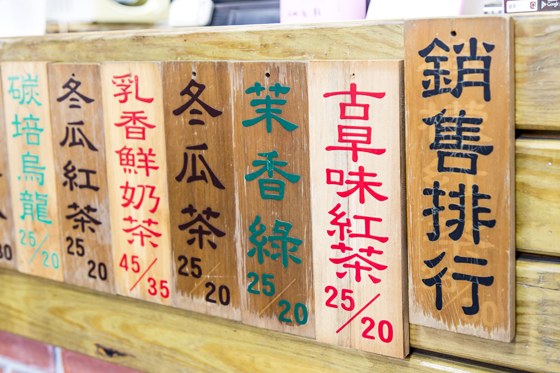 銷售排行
古早味紅茶
25/20
茉香綠
25/20
冬瓜茶
25/20
乳香鮮奶茶
45/35
冬瓜紅茶
25/20
碳培烏龍
25/20
30